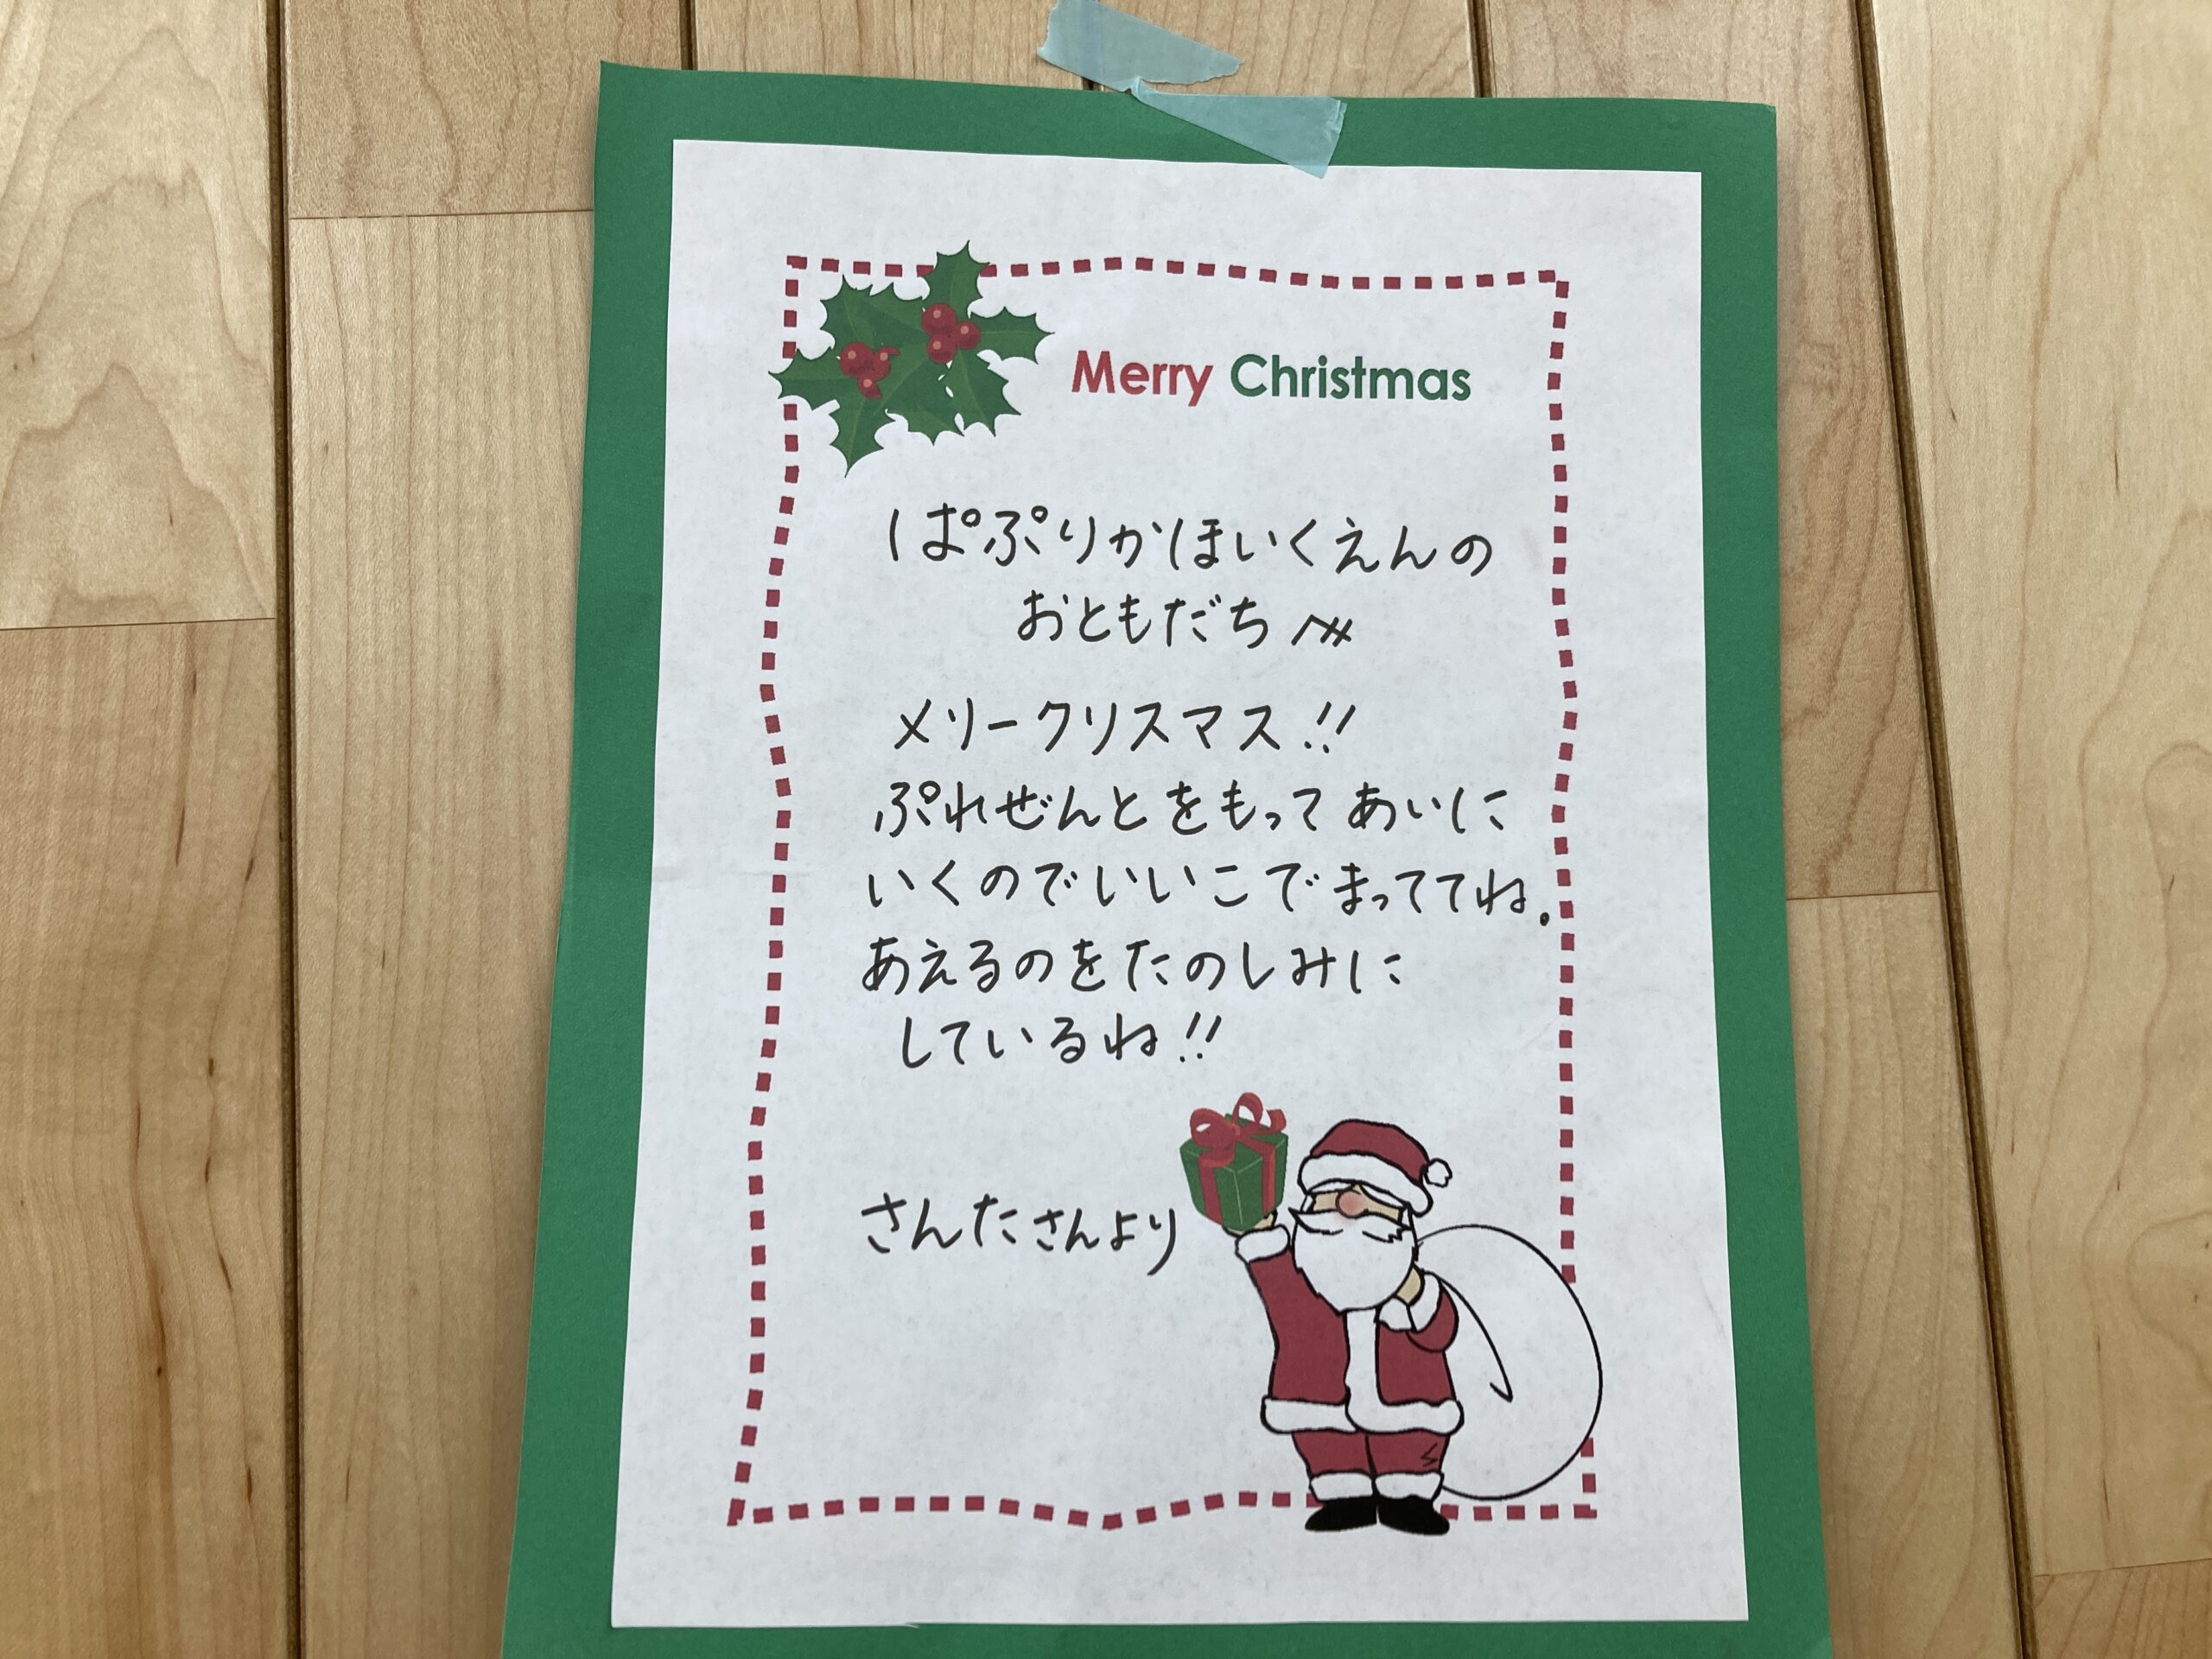 Merry Christmas
ぱぷりかほいくえんの
おともだちへ
メリークリスマス!!
ぷれぜんとをもって あいに
いくのでいいこで まっててね。
あえるのをたのしみに
しているね!!
さんたさんより